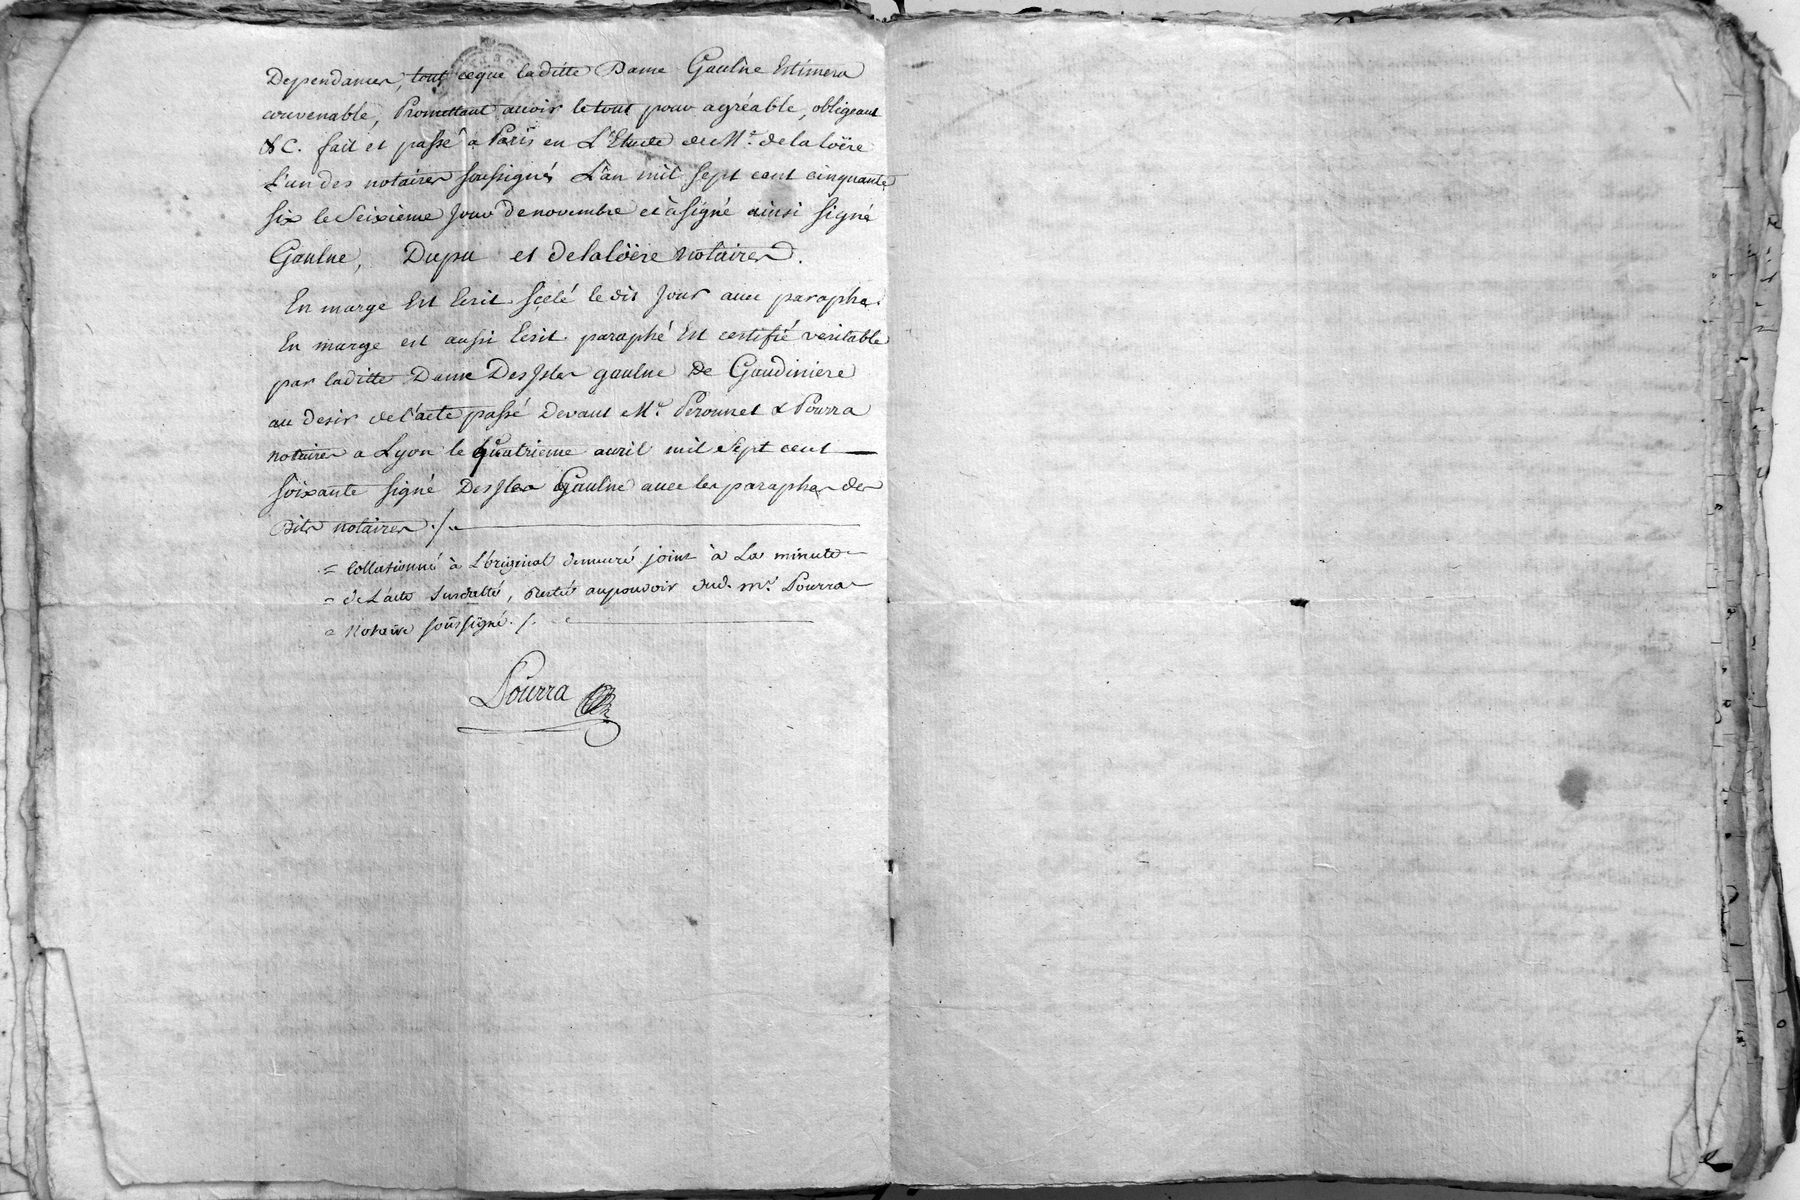 Dependances, tout ceque laditte Dame Gaulne Estimera
convenable, Promettant avoir le tout pour agréable, obligeant
&c. fait et passé a Paris en L'Etude de Me. de la loëre
L'un des notaires soussignés L'an mil sept cent cinquante
six le Seixieme Jour de novembre et à signé ainsi signé
Gaulne, Dupu et delaloëre notaires.
En marge Est Ecrit Scelé le dit Jour avec paraphe.
En marge est aussi Ecrit paraphé Est certifié veritable
par laditte Dame Des Jsles gaulne de Gaudiniere
au desir de l'acte passé Devant Me. Peronnet & Pourra
notaires a Lyon le quatrieme avril mil sept cent
soixante signé Des Jsles Gaulne avec les paraphes des
Dits notaires ./.
= Collationné à L'original demeuré joint à La minute
= de L'acte Susdatté, Restée au pouvoir dud. me. Pourra
= Notaire soussigné ./.
Pourra